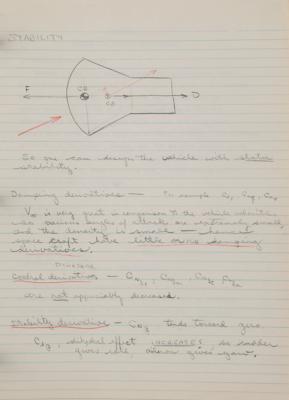 STABILITY
F CG CP D
So one can design the vehicle with static
stability.
Damping derivatives — for example
V∞ is very great in comparison to the vehicle velocities
also various angles of attack are extremely small,
and the density is small — hence
space craft have little or no damping
derivatives.
Control derivatives —
are not appreciably decreased.
Stability derivative — tends toward zero.
dihedral effect INCREASES, so rudder
gives roll, aileron gives yaw.